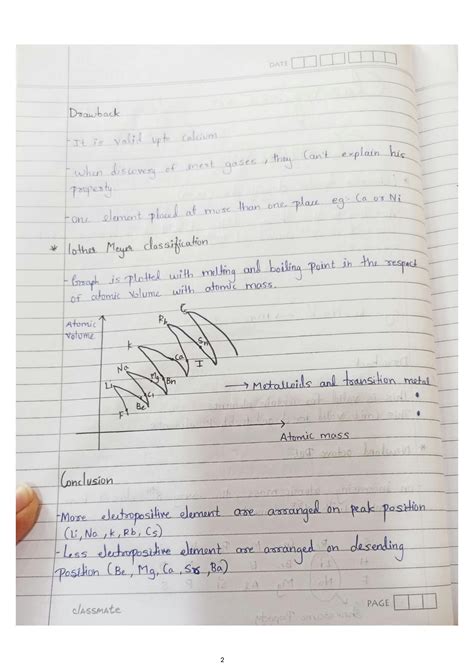 DATE
Drawback
- It is valid upto calcium
- When discovery of inert gases, they can't explain his
property.
- One element placed at more than one place eg- Ca or Ni
* lother Meyer classification
- Graph is plotted with melting and boiling point in the respect
of atomic volume with atomic mass.
Atomic
volume
Rb
Sn
K
Ca
I
Na
Mg
Bn
Li
Cl
Be
F
→ Metalloids and transition metal
Atomic mass
Conclusion
- More electropositive element are arranged on peak position
(Li, Na, K, Rb, Cs)
- Less electropositive element are arranged on desending
position (Be, Mg, Ca, Sr, Ba)
classmate
PAGE
2